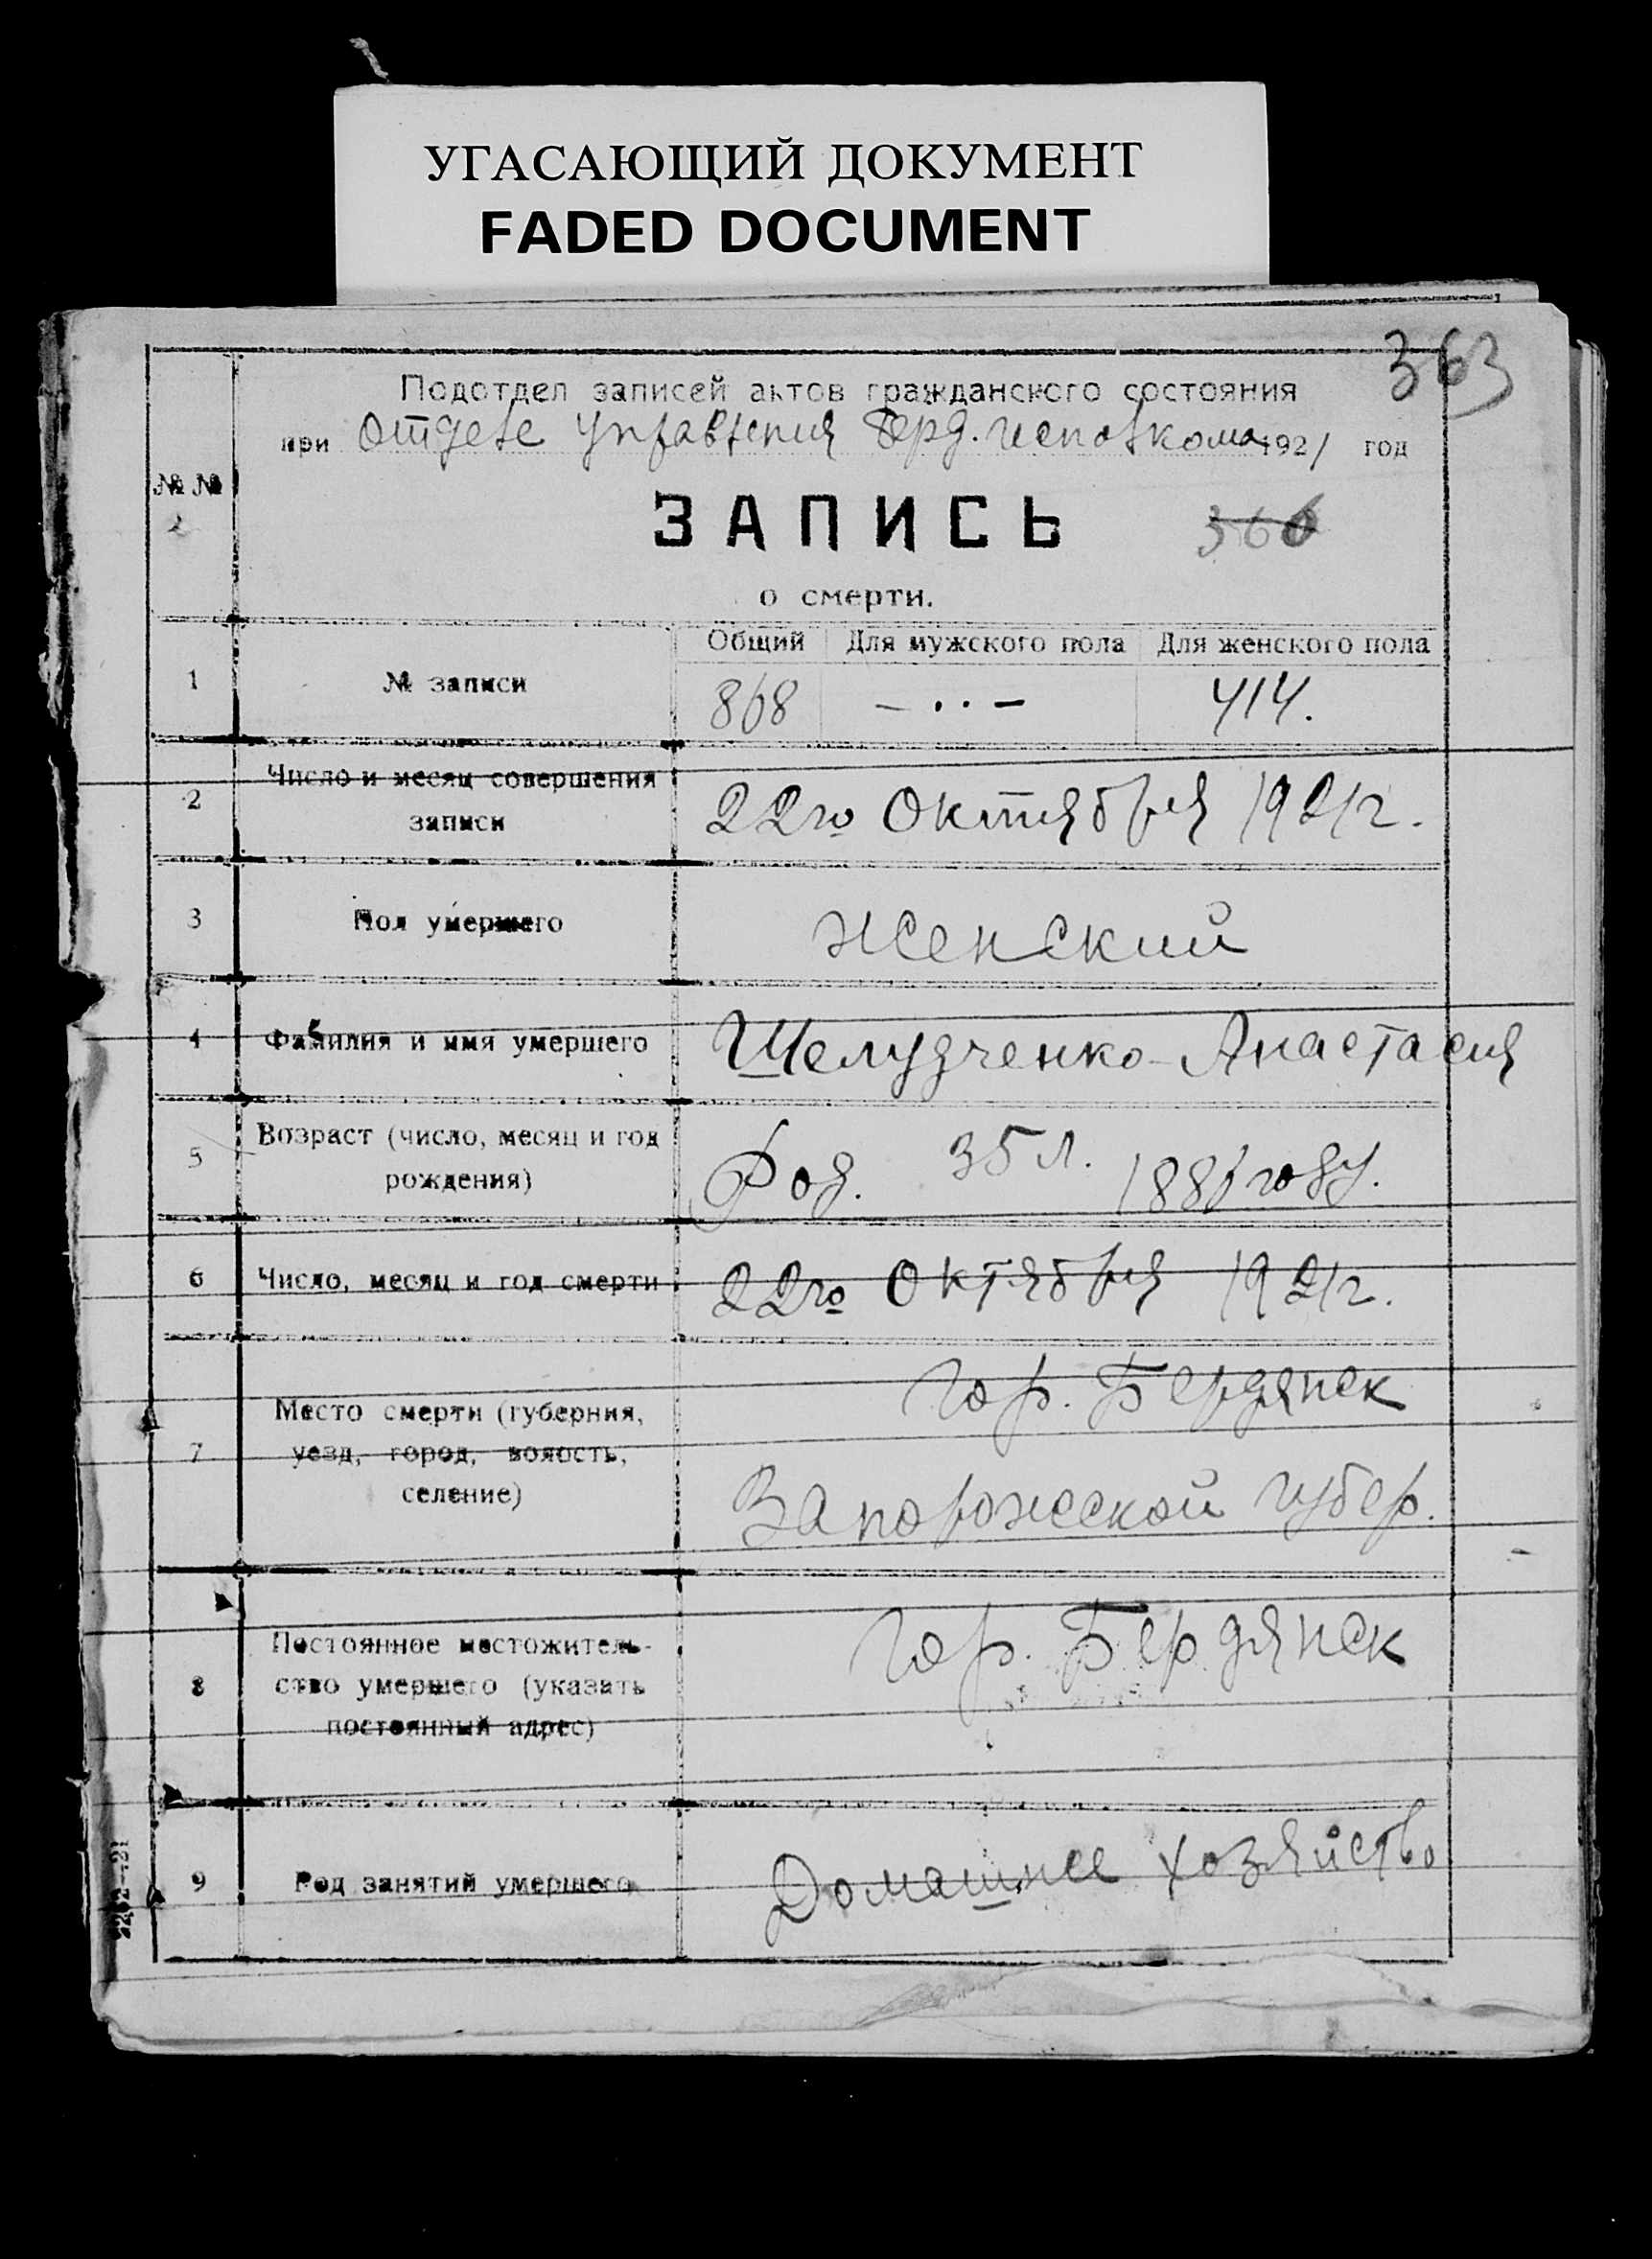 УГАСАЮЩИЙ ДОКУМЕНТ
FADED DOCUMENT
363
Подотдел записей актов гражданского состояния
при отделе управления Берд. исполкома 1921 год
№ №
2
ЗАПИСЬ
366
о смерти.
Общий Для мужского пола Для женского пола
1 № записи 868 — · · — 414.
2 Число и месяц совершения записи 22го Октября 1921г.
3 Пол умершего женский
4 Фамилия и имя умершего Шелудченко - Анастасия
5 Возраст (число, месяц и год рождения) Род. 35 л. году.
6 Число, месяц и год смерти 22го Октября 1921г.
7 Место смерти (губерния, уезд, город, волость, селение) гор. Бердянск
Запорожской губер.
8 Постоянное местожительство умершего (указать постоянный адрес) гор. Бердянск
9 Род занятий умершего Домашнее хозяйство